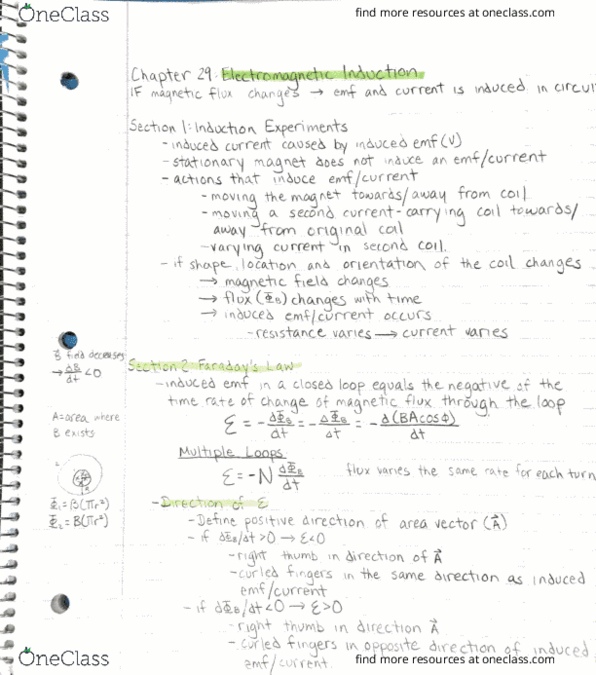 OneClass
find more resources at oneclass.com
Chapter 29: Electromagnetic Induction
IF magnetic flux changes → emf and current is induced in circui
Section 1: Induction Experiments
- induced current caused by induced emf (V)
- stationary magnet does not induce an emf/current
- actions that induce emf/current
- moving the magnet towards/away from coil
- moving a second current-carrying coil towards/
away from original coil
- varying current in second coil.
- if shape, location and orientation of the coil changes
→ magnetic field changes
→ flux (Φ_B) changes with time
→ induced emf/current occurs
- resistance varies → current varies
B field decreases
→ dB/dt < 0
Section 2: Faraday's Law
- induced emf in a closed loop equals the negative of the
time rate of change of magnetic flux through the loop
A = area where
B exists
ε = - dΦ_B/dt = - dΦ_B/dt = - d(BAcosϕ)/dt
Multiple Loops
ε = -N dΦ_B/dt
flux varies the same rate for each turn
Φ₁ = B(πr²)
Φ₂ = B(πr²)
- Direction of ε
- Define positive direction of area vector (A⃗)
- if dΦ_B/dt > 0 → ε < 0
- right thumb in direction of A⃗
- curled fingers in the same direction as induced
emf/current
- if dΦ_B/dt < 0 → ε > 0
- right thumb in direction A⃗
- curled fingers in opposite direction of induced
emf/current.
OneClass
find more resources at oneclass.com